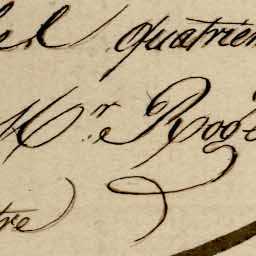 quatrièm
Mr. Roge
tre